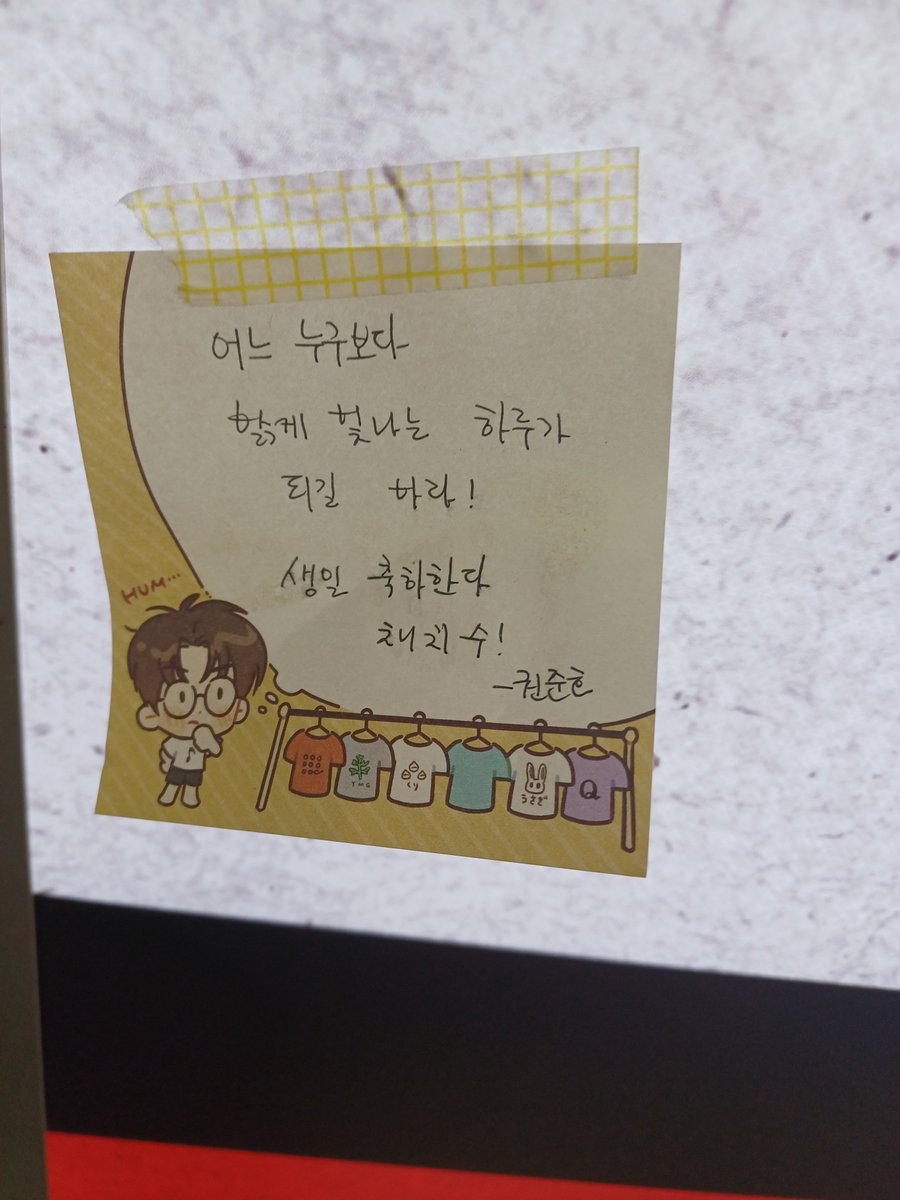 어느 누구보다
밝게 빛나는 하루가
되길 바라!
생일 축하한다
채치수!
-권준호
HUM...
YMG
くり
うさぎ
Q